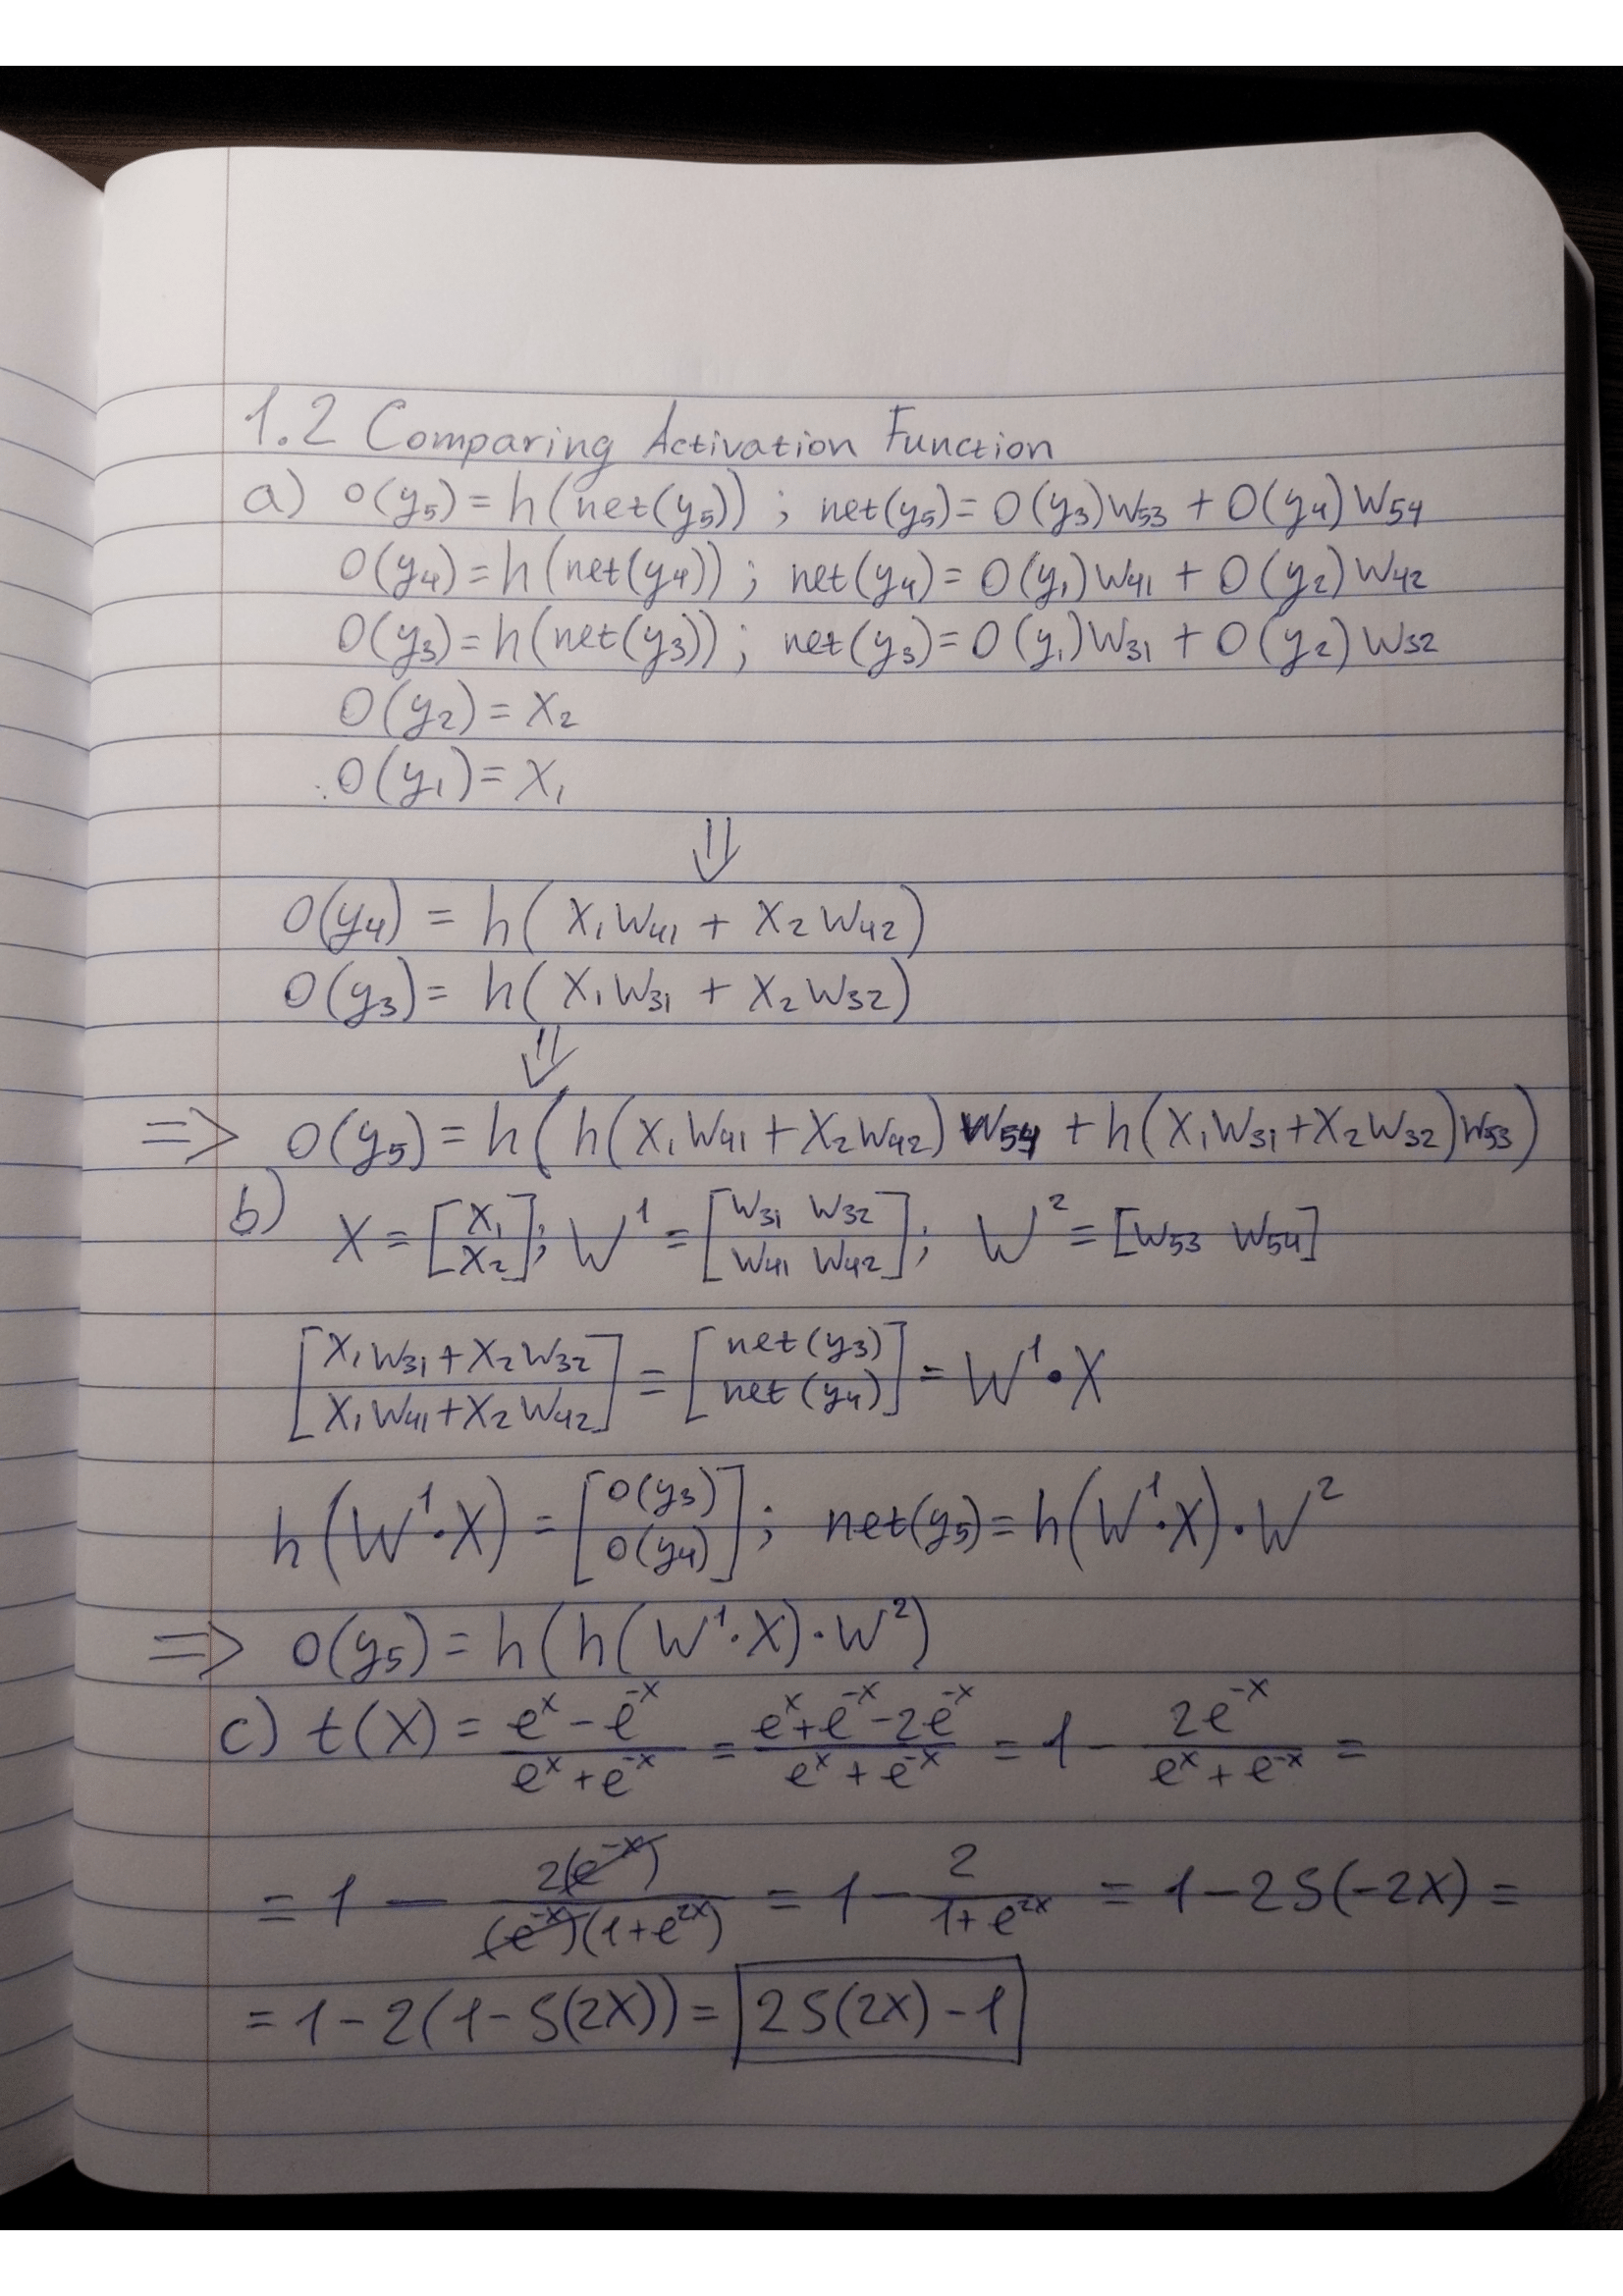 1.2 Comparing Activation Function
a) O(y₅) = h(net(y₅)) ; net(y₅) = O(y₃)W₅₃ + O(y₄)W₅₄
O(y₄) = h(net(y₄)) ; net(y₄) = O(y₁)W₄₁ + O(y₂)W₄₂
O(y₃) = h(net(y₃)) ; net(y₃) = O(y₁)W₃₁ + O(y₂)W₃₂
O(y₂) = X₂
O(y₁) = X₁
⇓
O(y₄) = h( X₁W₄₁ + X₂W₄₂)
O(y₃) = h( X₁W₃₁ + X₂W₃₂)
⇓
=> O(y₅) = h(h(X₁W₄₁ + X₂W₄₂)W₅₄ + h(X₁W₃₁ + X₂W₃₂)W₅₃)
b) X = [X₁ / X₂]; W¹ = [W₃₁ W₃₂ / W₄₁ W₄₂]; W² = [W₅₃ W₅₄]
[X₁W₃₁ + X₂W₃₂ / X₁W₄₁ + X₂W₄₂] = [net(y₃) / net(y₄)] = W¹·X
h(W¹·X) = [O(y₃) / O(y₄)]; net(y₅) = h(W¹·X)·W²
=> O(y₅) = h(h(W¹·X)·W²)
c) t(X) = (eˣ - e⁻ˣ)/(eˣ + e⁻ˣ) = (eˣ + e⁻ˣ - 2e⁻ˣ)/(eˣ + e⁻ˣ) = 1 - 2e⁻ˣ/(eˣ + e⁻ˣ) =
= 1 - 2(e⁻ˣ)/((e⁻ˣ)(1 + e²ˣ)) = 1 - 2/(1 + e²ˣ) = 1 - 2S(-2X) =
= 1 - 2(1 - S(2X)) = 2S(2X) - 1